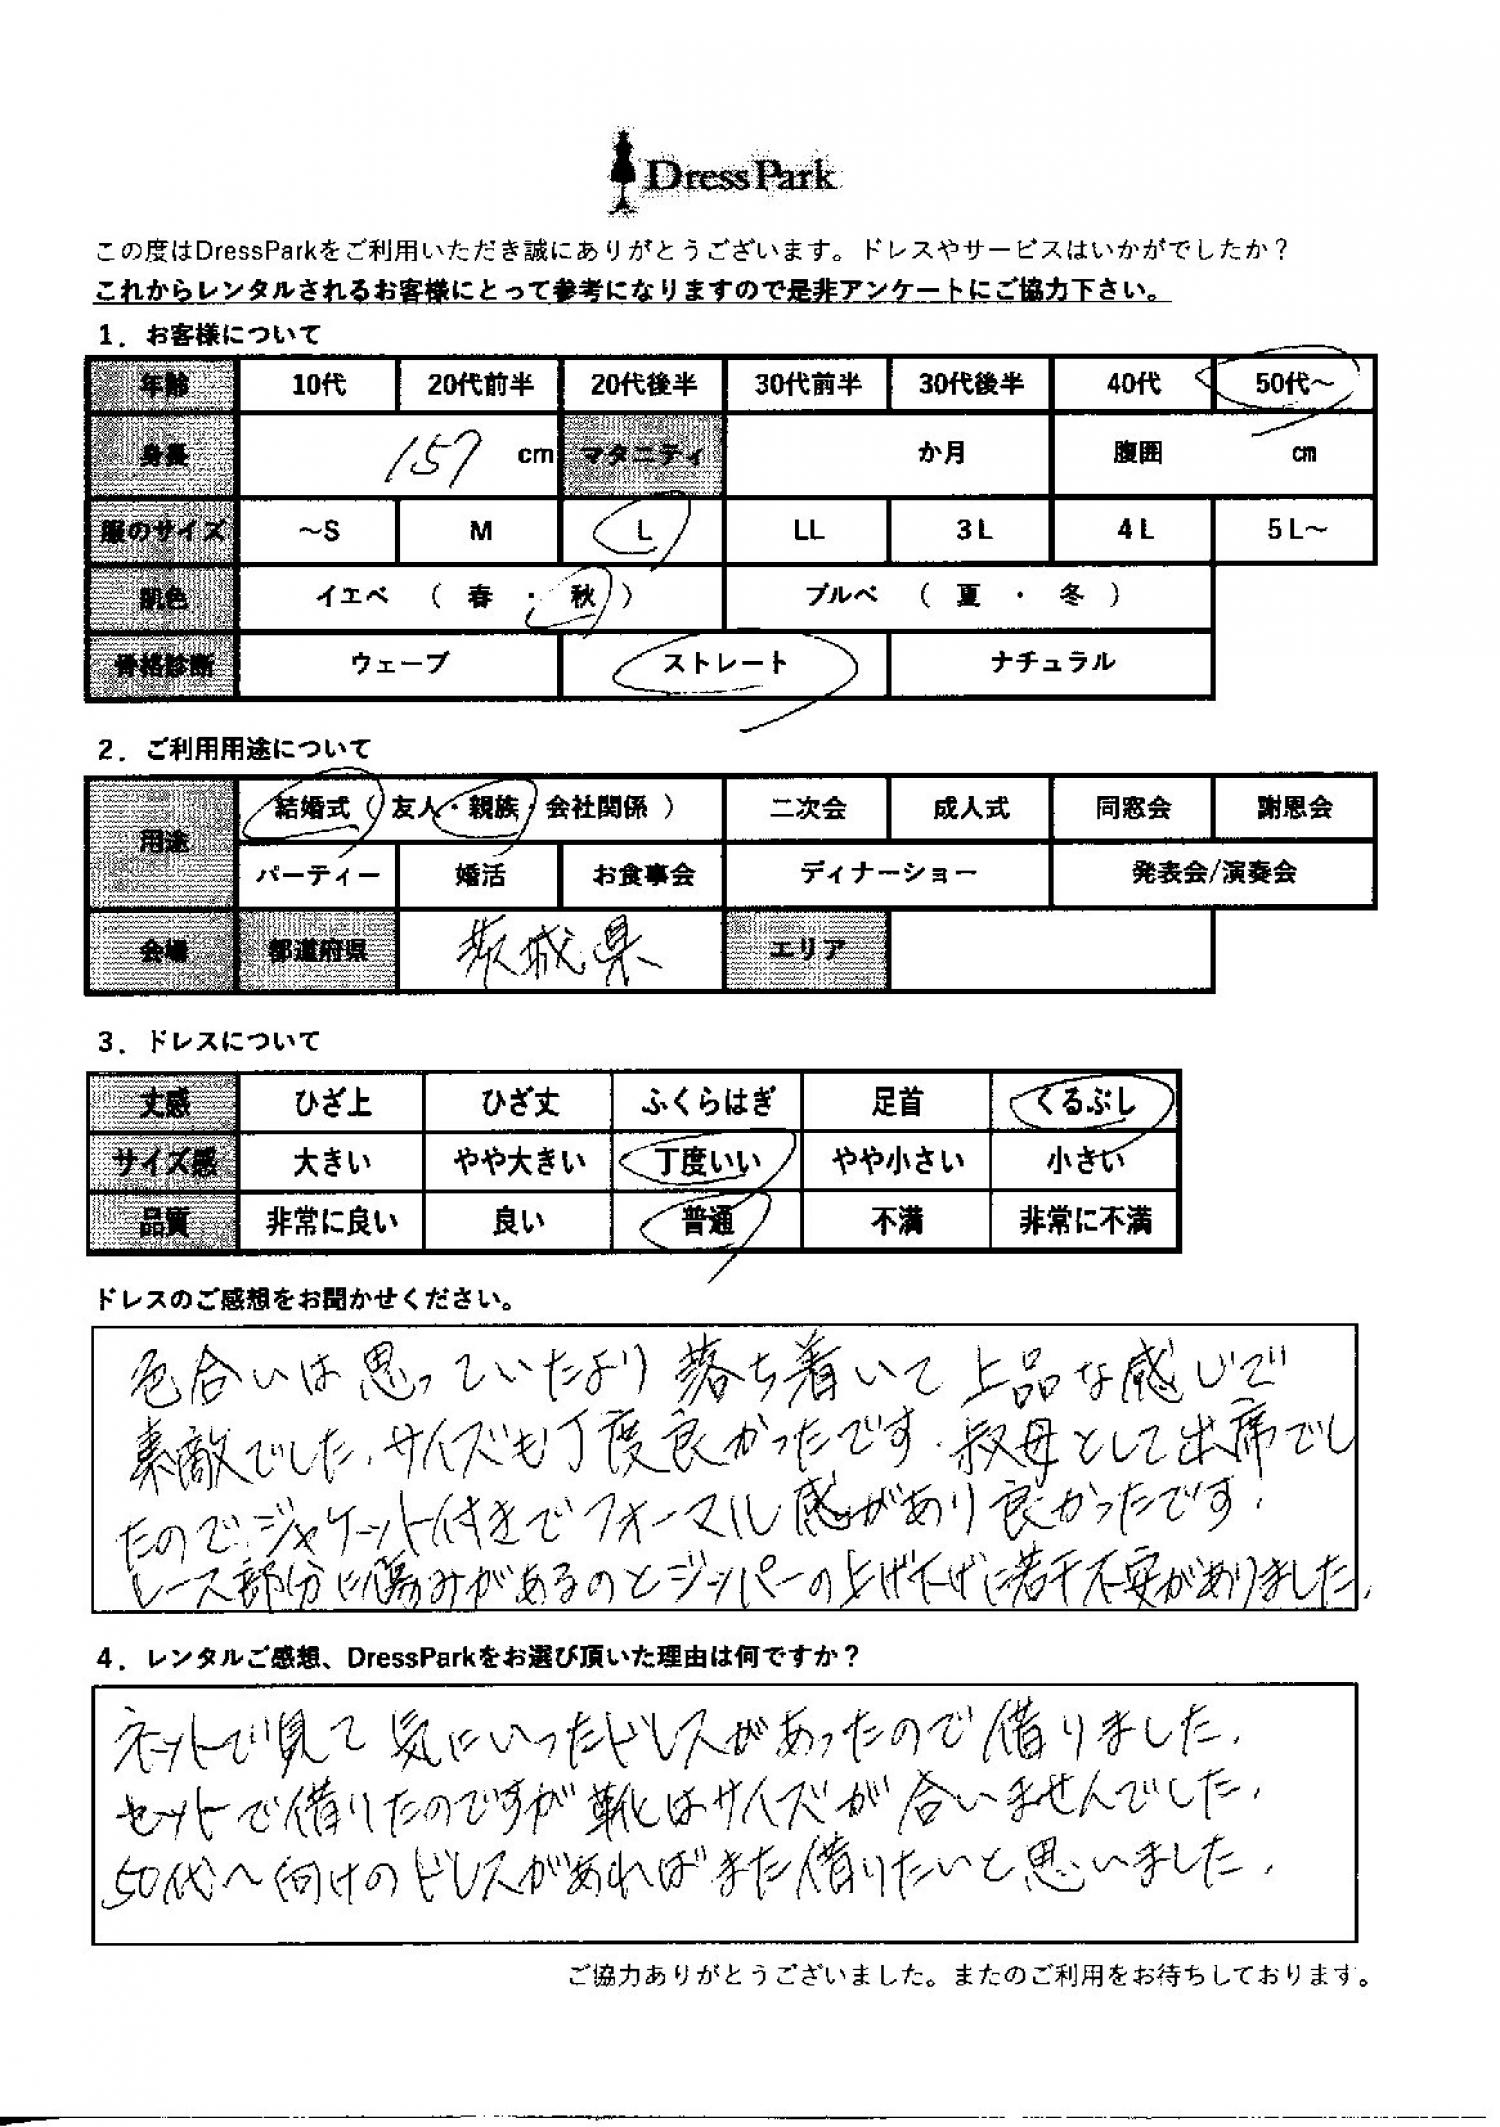 DressPark
この度はDressParkをご利用いただき誠にありがとうございます。ドレスやサービスはいかがでしたか？
これからレンタルされるお客様にとって参考になりますので是非アンケートにご協力下さい。
1．お客様について
年齢 10代 20代前半 20代後半 30代前半 30代後半 40代 50代～
身長 157 cm マタニティ か月 腹囲 cm
服のサイズ ～S M L LL 3L 4L 5L～
肌色 イエベ （ 春 ・ 秋 ） ブルベ （ 夏 ・ 冬 ）
骨格診断 ウェーブ ストレート ナチュラル
2．ご利用用途について
用途 結婚式（ 友人・親族・会社関係 ） 二次会 成人式 同窓会 謝恩会
パーティー 婚活 お食事会 ディナーショー 発表会/演奏会
会場 都道府県 茨城県 エリア
3．ドレスについて
丈感 ひざ上 ひざ丈 ふくらはぎ 足首 くるぶし
サイズ感 大きい やや大きい 丁度いい やや小さい 小さい
品質 非常に良い 良い 普通 不満 非常に不満
ドレスのご感想をお聞かせください。
色合いは思っていたより落ち着いて上品な感じで
素敵でした。サイズも丁度良かったです。叔母として出席でし
たので、ジャケット付きでフォーマル感があり良かったです。
レース部分に傷みがあるのとジッパーの上げ下げに若干不安がありました。
4．レンタルご感想、DressParkをお選び頂いた理由は何ですか？
ネットで見て気にいったドレスがあったので借りました。
セットで借りたのですが靴はサイズが合いませんでした。
50代～向けのドレスがあればまた借りたいと思いました。
ご協力ありがとうございました。またのご利用をお待ちしております。